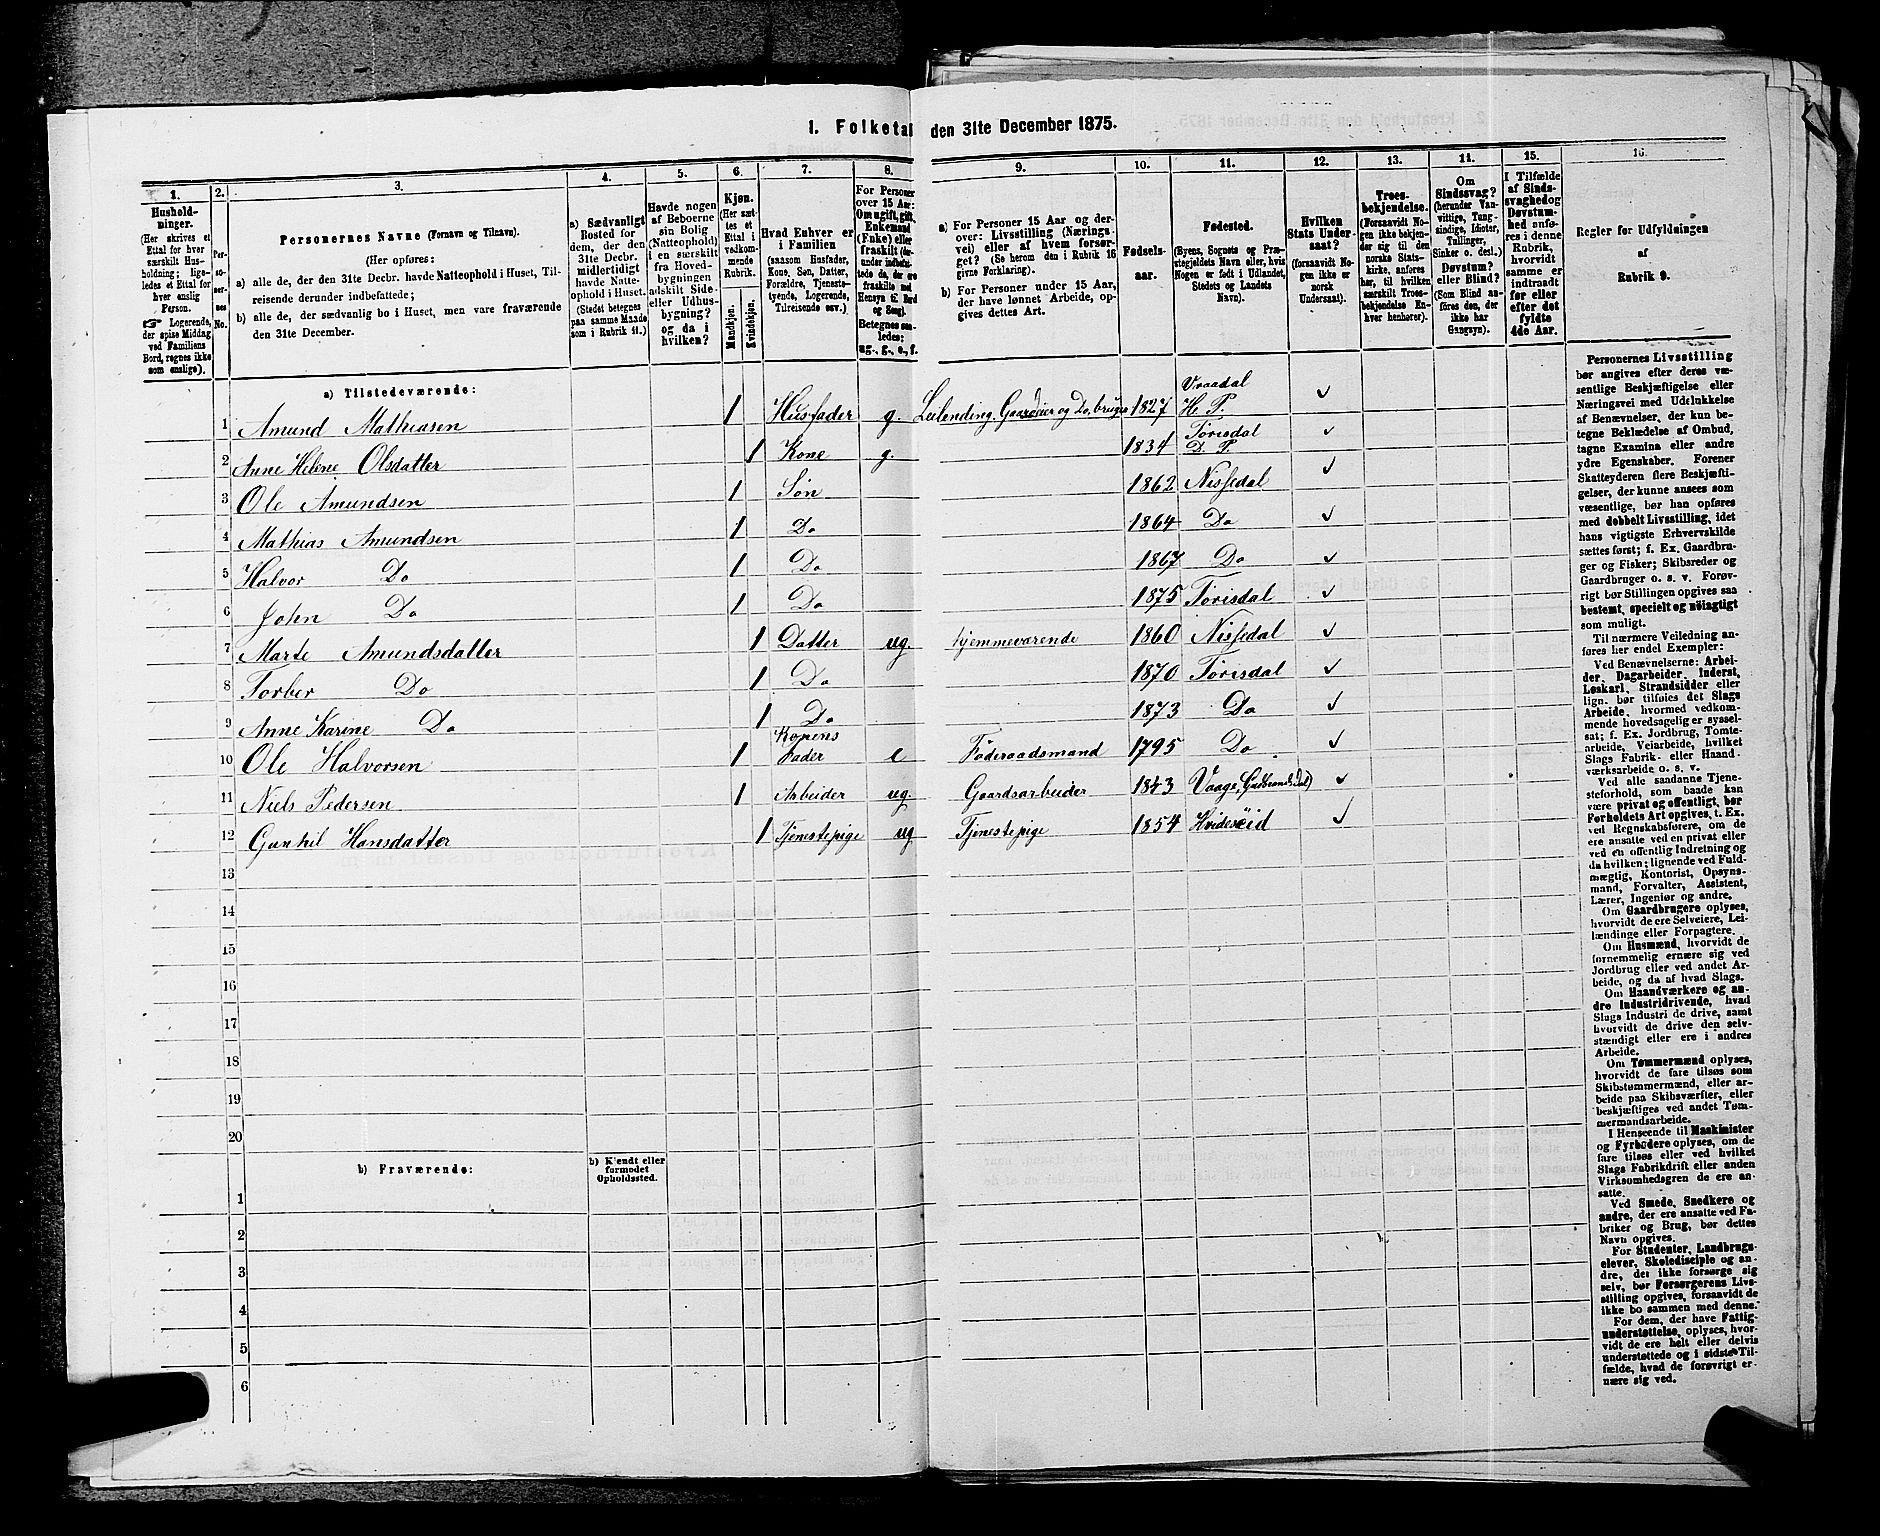 1. Folketal den 31te December 1875.
1. 2. 3. 4. 5. 6. 7. 8. 9. 10. 11. 12. 13. 14. 15. 16.
Husholdninger.
(Her skrives et
Ettal for hver
særskilt Husholdning;
ligeledes et Ettal for
hver enslig
Person.
Logerende,
der spise Middag
ved Familiens
Bord, regnes ikke
som enslige).
Personernes No.
Personernes Navne (Fornavn og Tilnavn).
(Her opføres:
a) alle de, der den 31te Decbr. havde Natteophold i Huset, Tilreisende
derunder indbefattede;
b) alle de, der sædvanlig bo i Huset, men vare fraværende
den 31te December.
a) Sædvanligt
Bosted for
dem, der den
31te Decbr.
midlertidigt
havde Natteophold
i Huset.
(Stedet betegnes
paa samme Maade
som i Rubrik 11.)
Havde nogen
af Beboerne
sin Bolig
(Natteophold)
i en særskilt
fra Hovedbygningen
adskilt Side-
eller Udhusbygning?
og da i
hvilken?
Kjøn.
(Her sættes
et
Ettal i
vedkommende
Rubrik.
Mandkjøn.
Kvindekjøn.
Hvad Enhver er
i Familien
(saasom Husfader,
Kone, Søn, Datter,
Forældre, Tjenestetyende,
Logerende,
Tilreisende osv.)
For Personer
over 15 Aar:
Om ugift, gift,
Enkemand
(Enke) eller
fraskilt (herunder
indbefattede
de, der ere
fraskilte med
Hensyn til Bord
og Seng).
Betegnes saaledes:
ug., g., e., f.
a) For Personer 15 Aar og derover:
Livsstilling (Næringsvei)
eller af hvem forsørget?
(Se herom den i Rubrik 16
givne Forklaring).
b) For Personer under 15 Aar,
der have lønnet Arbeide, opgives
dettes Art.
Fødselsaar.
Fødested.
(Byens, Sognets og Præstegjeldets
Navn eller, hvis
Nogen er født i Udlandet,
Stedets og Landets
Navn).
Hvilken
Stats Undersaat?
(forsaavidt Nogen
ikke er
norsk
Undersaat).
Troesbekjendelse.
(Forsaavidt Nogen
ikke bekjender
sig til den
norske Statskirke,
anføres
her, til hvilken
særskilt Troesbekjendelse
Enhver
henhører).
Om
Sindssvag?
(herunder Vanvittige,
Tungsindige,
Idioter,
Tullinger,
Sinker o. desl.)
Døvstum?
eller Blind?
(Som Blind anføres
den, der
ikke har
Gangsyn).
I Tilfælde
af Sindssvaghed og
Døvstumhed
anføres
i denne
Rubrik,
hvorvidt
samme er
indtraadt
før eller
efter det
fyldte
4de Aar.
Regler for Udfyldningen
af
Rubrik 9.
a) Tilstedeværende:
1 Amund Mathiasen 1 Husfader g. Leilending, Gaardeier og Do, bruger 1827 Vraadal H. P. ✓
2 Anne Helene Olsdatter 1 Kone g. 1834 Torisdal D. P. ✓
3 Ole Amundsen 1 Søn 1862 Nissedal ✓
4 Mathias Amundsen 1 Do 1864 Do ✓
5 Halvor Do 1 Do 1867 Do ✓
6 John Do 1 Do 1875 Torisdal ✓
7 Marte Amundsdatter 1 Datter ug. hjemmeværende 1860 Nissedal ✓
8 Torber Do 1 Do 1870 Torisdal ✓
9 Anne Karine Do 1 Do 1873 Do ✓
10 Ole Halvorsen 1 Konens Fader e Føderaadsmand 1795 Do ✓
11 Niels Pedersen 1 Arbeider ug. Gaardsarbeider 1843 Vaage, (Gudbrandsdal) ✓
12 Gunhil Hansdatter 1 Tjenestepige ug Tjenestepige 1854 Hvideseid ✓
13
14
15
16
17
18
19
20
b) Fraværende:
b) Kjendt eller
formodet
Opholdssted.
1
2
3
4
5
6
Personernes Livsstilling
bør angives efter deres væsentlige
Beskjæftigelse eller
Næringsvei med Udelukkelse
af Benævnelser, der kun betegne
Beklædelse af Ombud,
tagne Examina eller andre
ydre Egenskaber. Forener
Skatteyderen flere Beskjæftigelser,
der kunne ansees som
væsentlige, bør han opføres
med dobbelt Livsstilling, idet
hans vigtigste Erhvervskilde
sættes først; f. Ex. Gaardbruger
og Fisker; Skibsreder og
Gaardbruger o. s. v. Forøvrigt
bør Stillingen opgives saa
bestemt, specielt og nöiagtigt
som muligt.
Til nærmere Veiledning anføres
her endel Exempler:
Ved Benævnelserne: Arbeider,
Dagarbeider, Inderst,
Løskarl, Strandsidder eller
lign. bør tilføies det Slags
Arbeide, hvormed vedkommende
hovedsagelig er sysselsat;
f. Ex. Jordbrug, Tomtearbeide,
Veiarbeide, hvilket
Slags Fabrik- eller Haandværksarbeide
o. s. v.
Ved alle saadanne Tjenesteforhold,
som baade kan
være privat og offentligt, bør
Forholdets Art opgives, t. Ex.
ved Regnskabsførere, om de
ere ansatte ved en privat eller
ved en offentlig Indretning og
da hvilken; lignende ved Fuldmægtig,
Kontorist, Opsynsmand,
Forvalter, Assistent,
Lærer, Ingeniør og andre.
Om Gaardbrugere oplyses,
hvorvidt de ere Selveiere, Leilændinge
eller Forpagtere.
Om Husmænd, hvorvidt de
fornemmelig ernære sig ved
Jordbrug eller ved andet Arbeide,
og da af hvad Slags.
Om Haandværkere og andre
Industridrivende, hvad
Slags Industri de drive, samt
hvorvidt de drive den selvstændigt
eller ere i andres
Arbeide.
Om Tømmermænd oplyses,
hvorvidt de fare tilsøs som
Skibstømmermænd, eller arbeide
paa Skibsværfter, eller
beskjæftiges ved andet Tømmermandsarbeide.
I Henseende til Maskinister
og Fyrbødere oplyses, om de
fare tilsøs eller ved hvilket
Slags Fabrikdrift eller anden
Virksomhedsgren de ere ansatte.
Ved Smede, Snedkere og
andre, der ere ansatte ved Fabriker
og Brug, bør dettes
Navn opgives.
For Studenter, Landbrugselever,
Skoledisciple og andre,
der ikke forsørge sig
selv, bør Forsørgerens Livsstilling
opgives, forsaavidt de
ikke bo sammen med denne.
For dem, der have Fattigunderstøttelse,
oplyses, hvorvidt
de ere helt eller delvis
understøttede og i sidste Tilfælde,
hvad de forøvrigt ernære
sig ved.